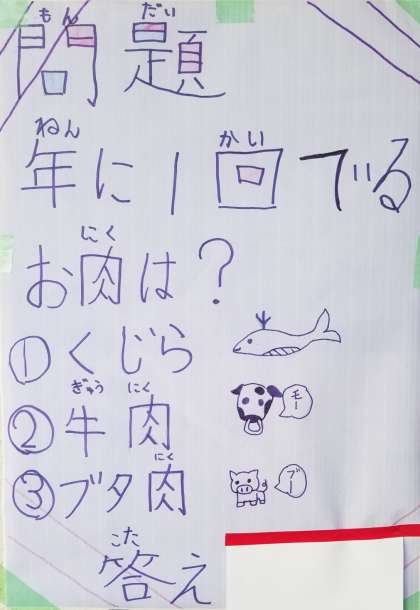 もん だい
問題
ねん かい
年に1回でる
にく
お肉は?
①くじら
ぎゅう にく
②牛肉 モー
にく
③ブタ肉 ブー
こた
答え